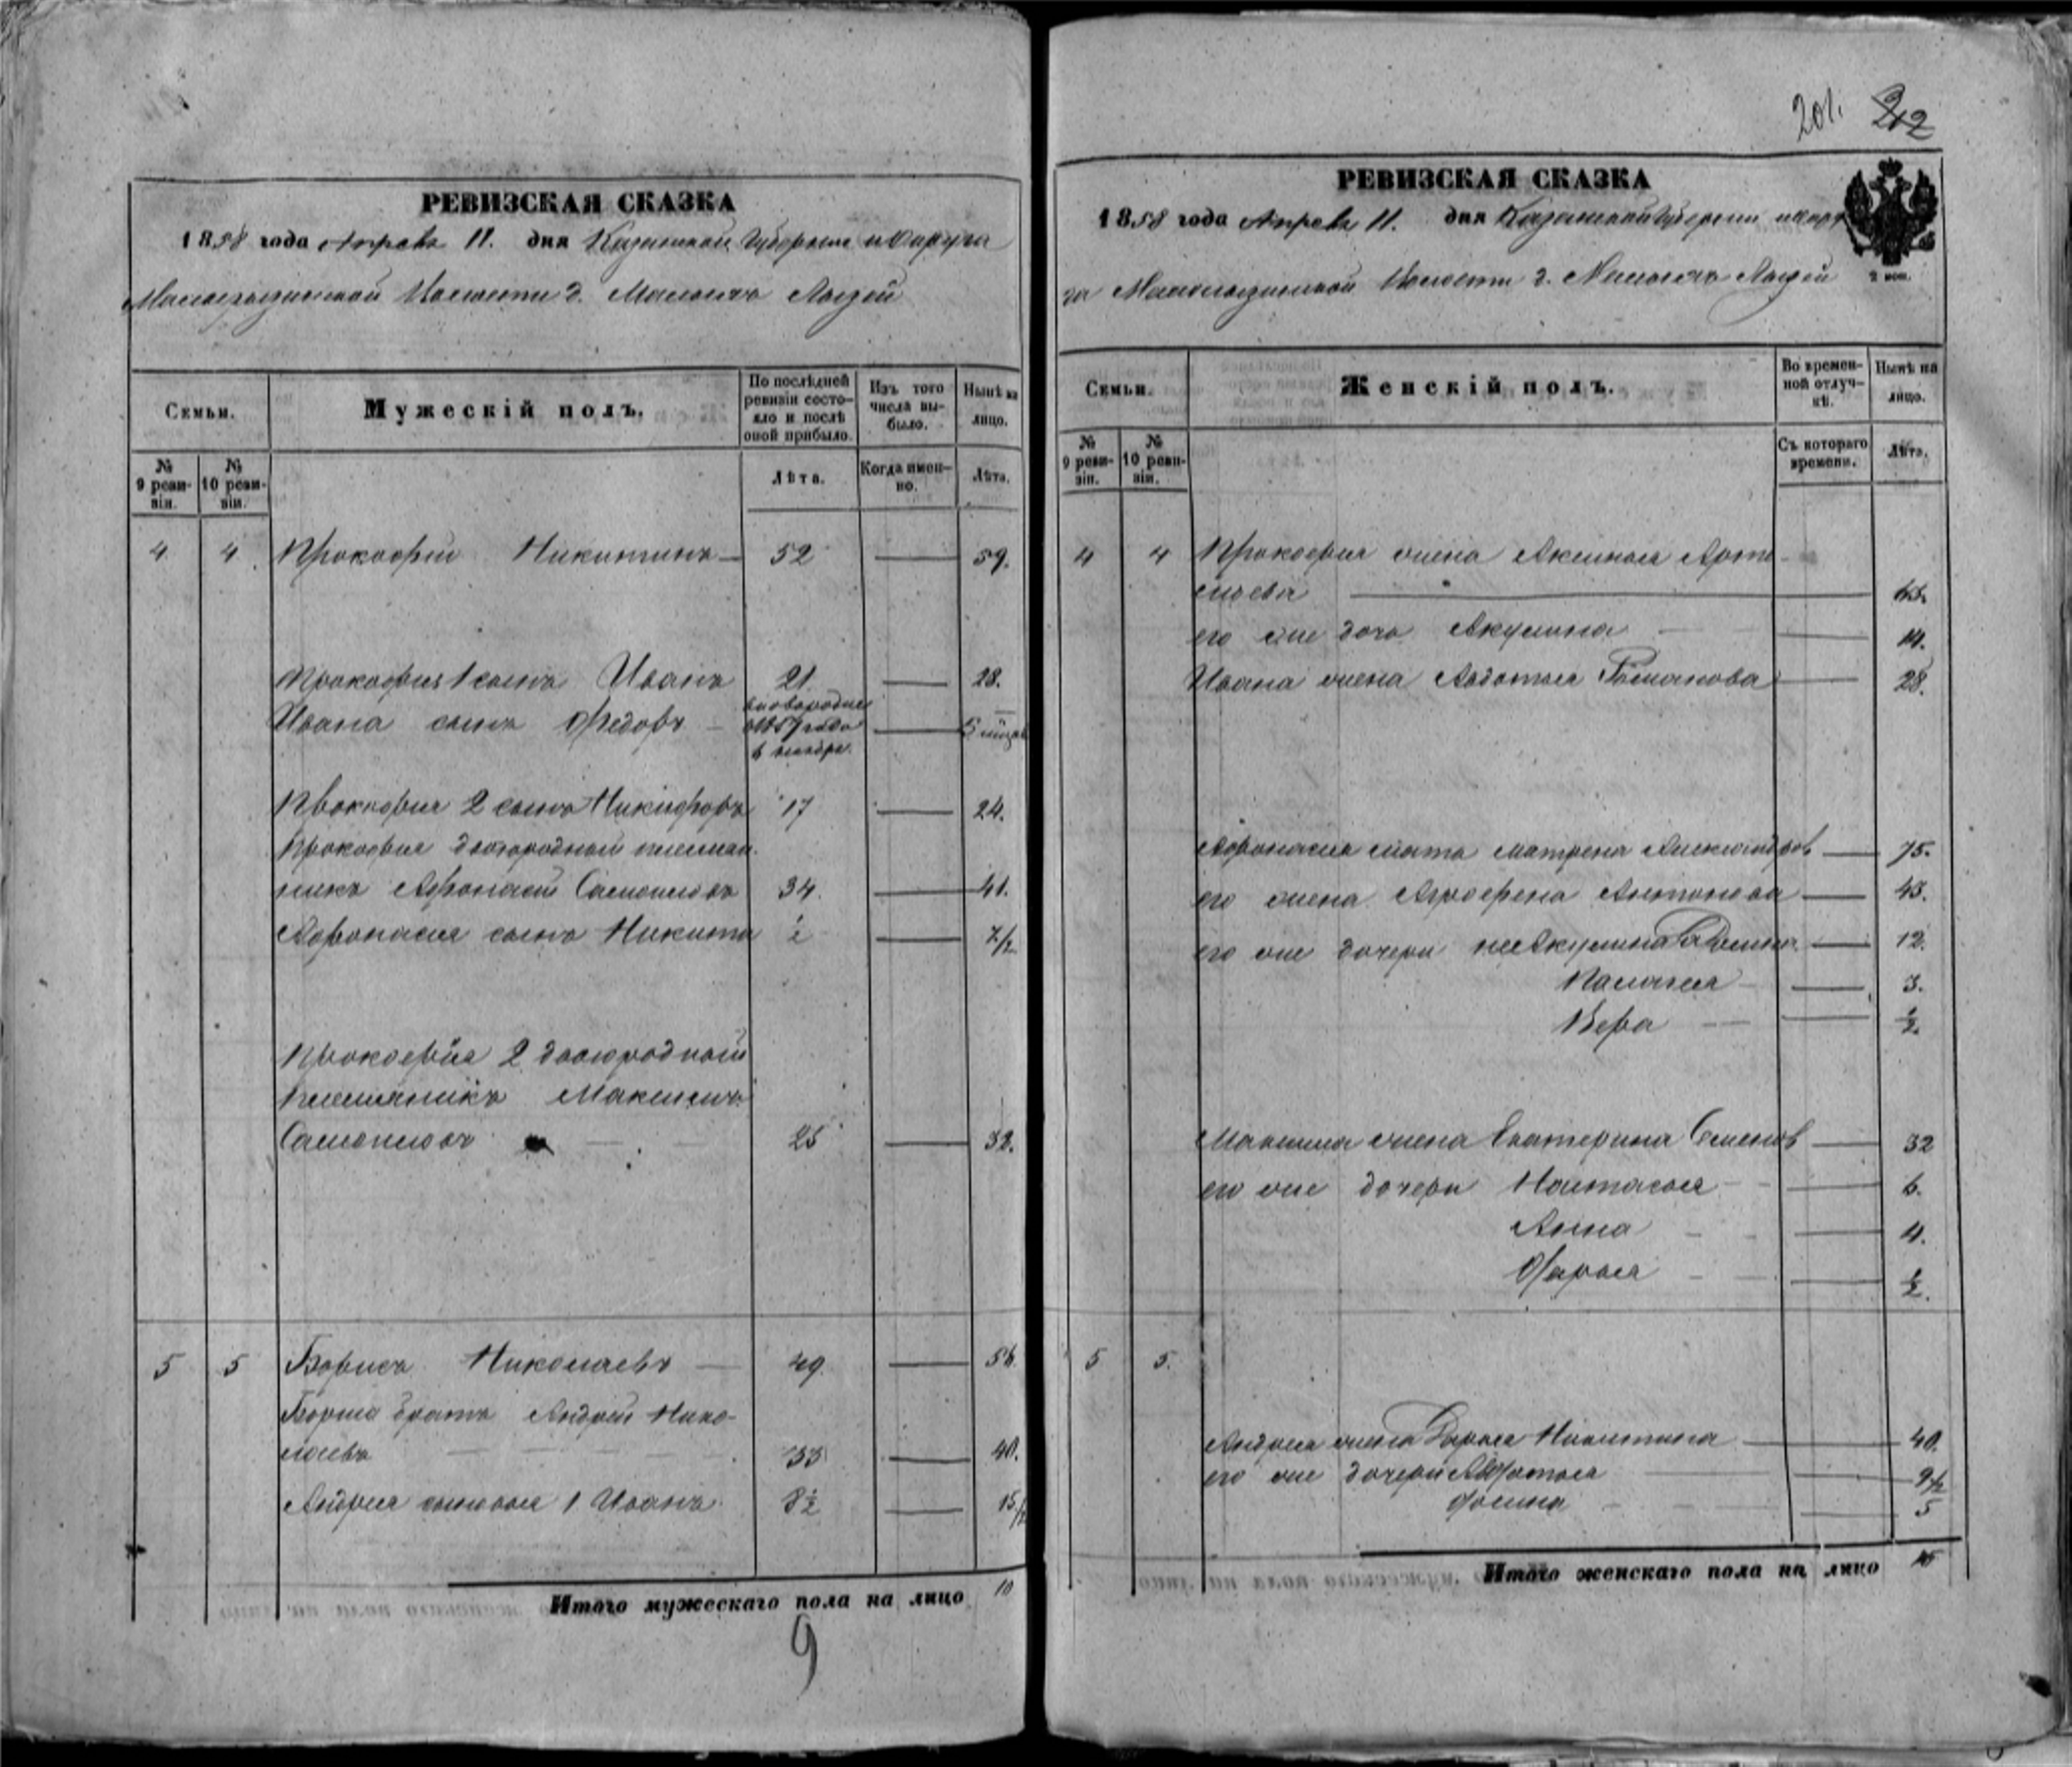 РЕВИЗСКАЯ СКАЗКА
1858 года Апреля 11. дня Казанской Губернии и Округа
Волости д. Малыхъ Лызей
Семьи.
Мужескій полъ.
По послѣдней ревизіи состояло и послѣ оной прибыло.
Изъ того числа выбыло.
Нынѣ на лицо.
№ 9 ревизіи.
№ 10 ревизіи.
Лѣта.
Когда именно.
Лѣта.
4 4 Прокофій Никитинъ 52 59.
Прокофья 1 сынъ Иванъ 21. 28.
Ивана сынъ Федоръ 1857 года 5
Прокофья 2 сынъ Никифоръ 17 24.
Прокофья двоюродный племян
никъ Афонасій Самойловъ 34. 41.
Афонасья сынъ Никита ½ 7½
Прокофья 2 двоюродный
племянникъ Максимъ
Самойловъ 25 32.
5 5 Борисъ Николаевъ 49 56.
Бориса братъ Андрей Нико-
лаевъ 33 40.
Андрея сыновья 1 Иванъ 8½ 15½
Итого мужескаго пола на лицо 10
9
201. 212
РЕВИЗСКАЯ СКАЗКА
1858 года Апреля 11. дня Казанской Губерніи и Окру
га Волости д. Малыхъ Лызей
2 коп.
Семьи.
Женскій полъ.
Во временной отлучкѣ.
Нынѣ на лицо.
№ 9 ревизіи.
№ 10 ревизіи.
Съ котораго времени.
Лѣта.
4 4 Прокофья жена Аксинья Арте
мьева
его же дочь Акулина 14.
Ивана жена Авдотья Романова 28.
Афонасья мать Матрена Александров 75.
его жена Агрофена Антонова 43.
его же дочери 12.
Палагея 3.
Вера ½
Максима жена Екатерина Семенов 32
его же дочери Настасья 6.
Анна 4.
Дарья ½.
5 5.
Андрея жена Дарья Никитина 40.
его же дочери 9½
5
Итого женскаго пола на лицо 15